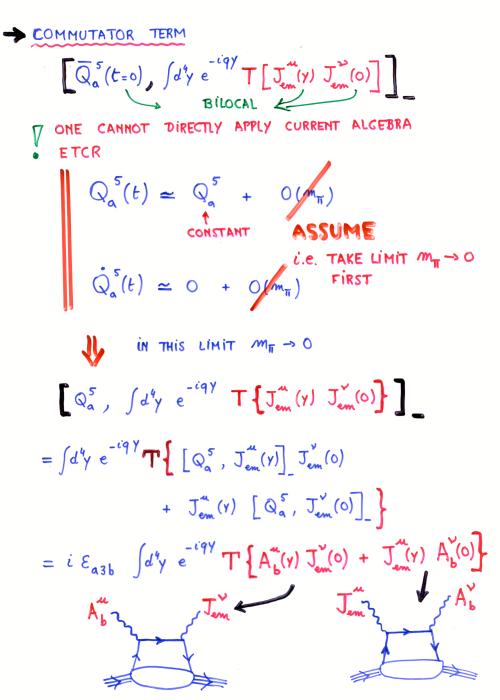 → COMMUTATOR TERM
[Q̄ₐ⁵(t=0), ∫d⁴y e^{-iqy} T[J_em^μ(y) J_em^ν(0)]]_
BILOCAL
! ONE CANNOT DIRECTLY APPLY CURRENT ALGEBRA
ETCR
Qₐ⁵(t) ≃ Qₐ⁵ + O(m_π)
↑
CONSTANT
ASSUME
i.e. TAKE LIMIT m_π → 0
FIRST
Q̇ₐ⁵(t) ≃ 0 + O(m_π)
⇓ IN THIS LIMIT m_π → 0
[Qₐ⁵, ∫d⁴y e^{-iqy} T{J_em^μ(y) J_em^ν(0)}]_
= ∫d⁴y e^{-iqy} T{ [Qₐ⁵, J_em^μ(y)]_ J_em^ν(0)
+ J_em^μ(y) [Qₐ⁵, J_em^ν(0)]_ }
= i ε_{a3b} ∫d⁴y e^{-iqy} T{A_b^μ(y) J_em^ν(0) + J_em^μ(y) A_b^ν(0)}
A_b^μ J_em^ν J_em^μ A_b^ν